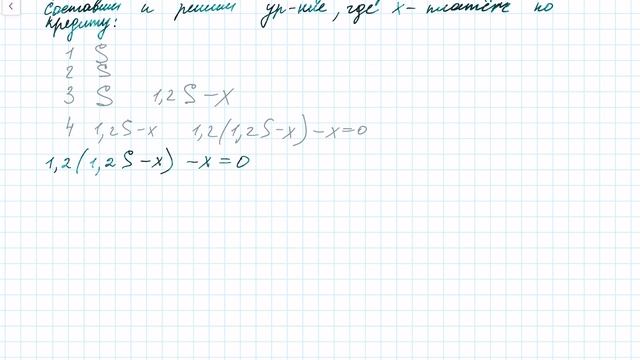 Составим и решим ур-ние, где x - платёж по
кредиту:
1 S
2 S
3 S 1,2S-x
4 1,2S-x 1,2(1,2S-x)-x=0
1,2(1,2S-x)-x=0